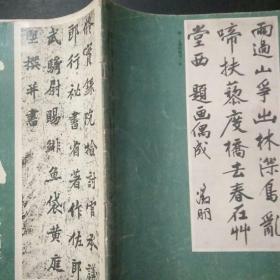 雨過山爭出林深鳥亂
啼扶藜度橋去春在艸
堂西 題畫偶成
修實錄院檢討官承議
郎行祕書省著作佐郎
武騎尉賜緋魚袋黃庭
堅撰并書